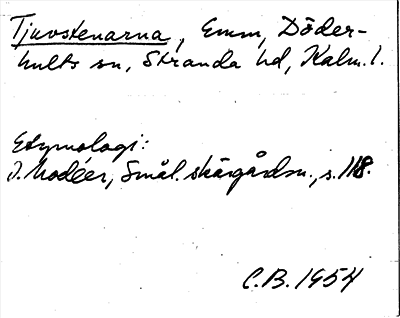 Tjuvstenarna, Emm, Döder-
hults sn, Stranda hd, Kalm. l.
Etymologi:
I. Modéer, Smål. skärgårdsn., s. 118.
C.B. 1954